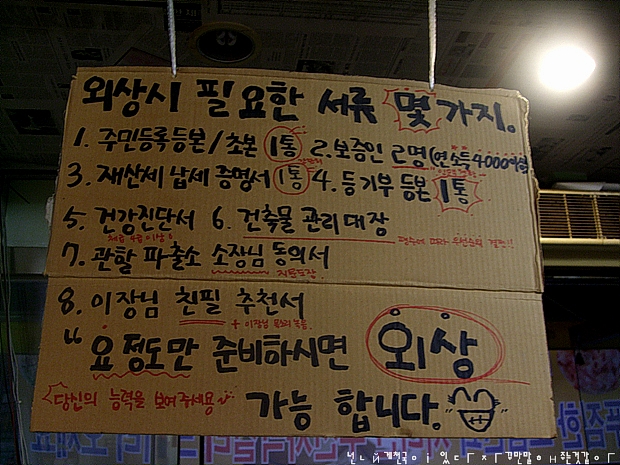 외상시 필요한 서류 몇 가지.
1. 주민등록등본/초본 1통 2. 보증인 2명(연소득 4000이상
3. 재산세 납세 증명서 1통 4. 등기부 등본 1통
5. 건강진단서 6. 건축물 관리대장
7. 관할 파출소 소장님 동의서
직인도장
8. 이장님 친필 추천서
+ 이장님 목소리 녹음
"요정도만 준비하시면 외상
당신의 능력을 보여주세용 가능 합니다.